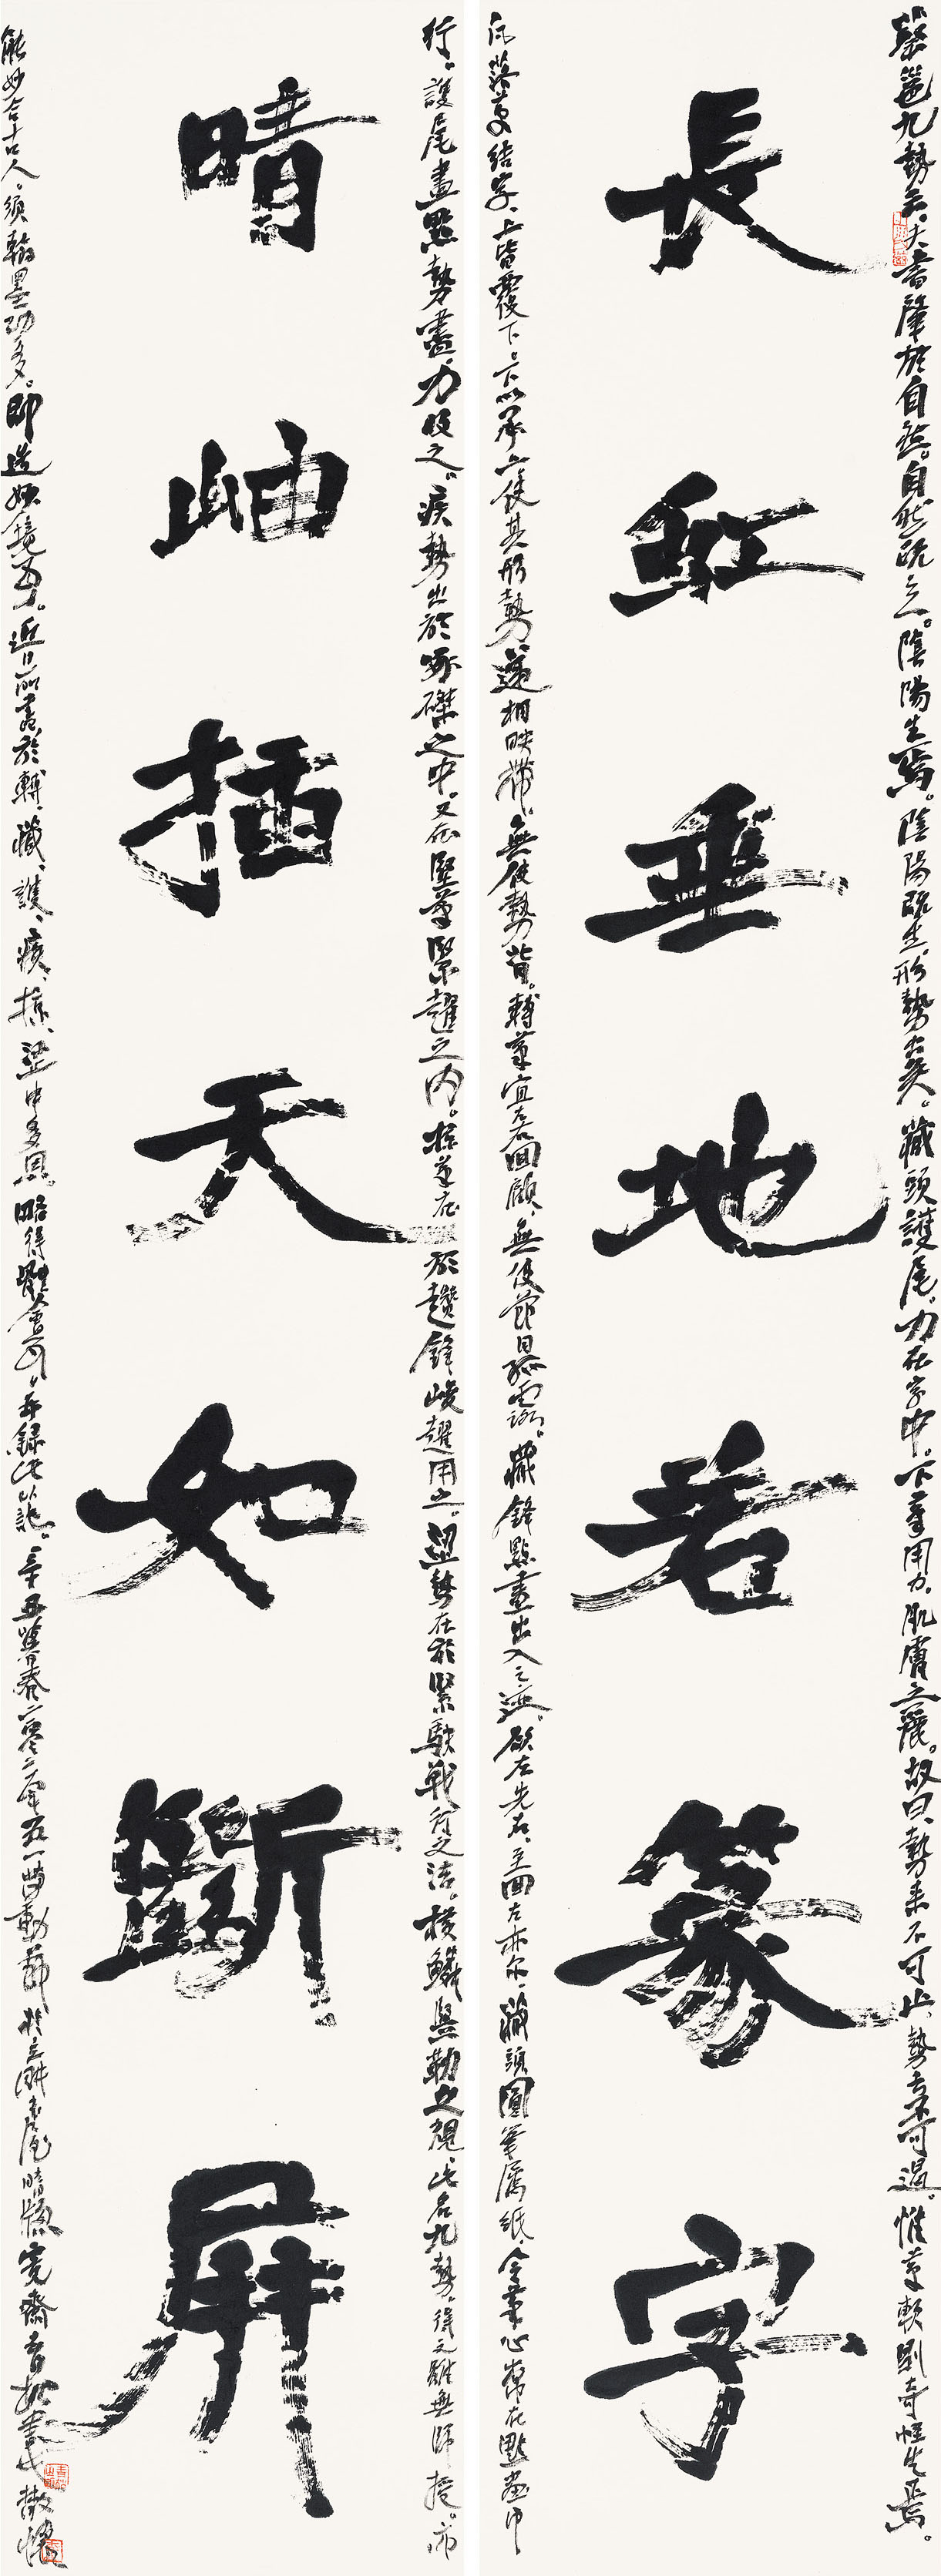 蔡邕九勢云。夫書肇於自然。自然既立。陰陽生焉。陰陽既生。形勢出矣。藏頭護尾。力在字中。下筆用力。肌膚之麗。故曰、勢來不可止、勢去不可遏。惟筆軟則奇怪生焉。
長虹垂地若篆字
凡落筆結字、上皆覆下、下以承上、使其形勢遞相映帶。無使勢背。轉筆宜左右回顧、無使節目孤露。藏鋒點畫出入之迹。欲左先右、至回左亦尔。藏頭圓筆屬紙、令筆心常在點畫中
行。護尾畫點勢盡、力收之。疾勢出於啄磔之中、又在豎筆緊趯之內。掠筆在於趲鋒峻趯用之。澀勢在於緊駃戰行之法。橫鱗豎勒之規、此名九勢。得之雖無師授。亦
晴岫插天如斷屏
能妙合古人。須翰墨功多。即造妙境耳。近日所書於轉、藏、護、疾、掠、澀中多思。略得體會耳。并錄此以記。辛丑暮春二零二一年五一勞動節於 晴牖 寬齋 散懷